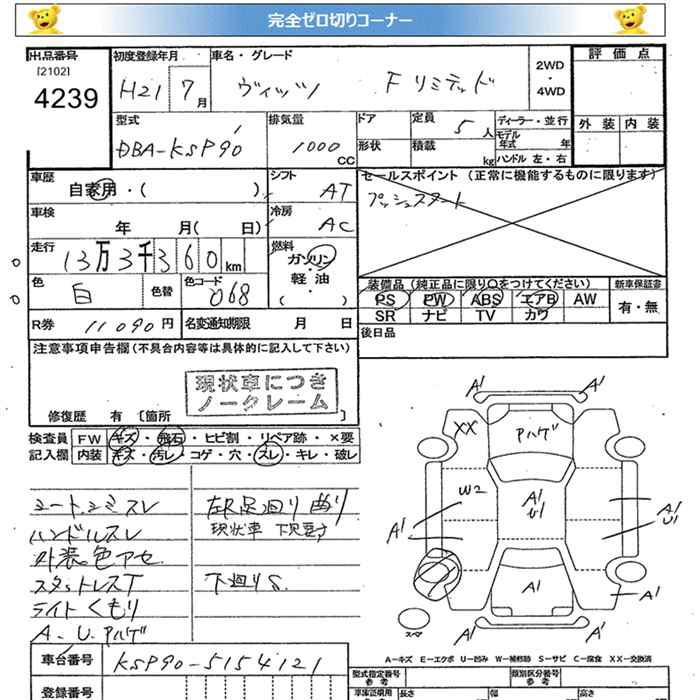 完全ゼロ切りコーナー
出品番号 初度登録年月 車名・グレード 2WD・4WD 評価点
[2102]
4239 H21 7月 ヴィッツ Fリミテッド
型式 排気量 ドア 定員 5人 ディーラー・並行 外装 内装
DBA-KSP90 1000CC 形状 積載 kg モデル年式 年
ハンドル左・右
車歴 自家用・( ) シフト AT セールスポイント (正常に機能するものに限ります)
車検 年 月( 日) 冷房 AC プッシュスタート
走行 13万3千360km 燃料 ガソリン・軽油( )
色 白 色替 色コード 068 装備品(純正品に限り○をつけてください) 新車保証書
PS PW ABS エアB AW 有・無
SR ナビ TV カワ
R券 11090円 名変通知期限 月 日 後日品
注意事項申告欄(不具合内容等は具体的に記入して下さい)
現状車につき
ノークレーム
修復歴 有 [箇所 ]
検査員 FW キズ・飛石・ヒビ割・リペア跡・×要
記入欄 内装 キズ・汚レ・コゲ・穴・スレ・キレ・破レ
シート、ユミスレ 左R足回り曲り
ハンドルスレ 現状車
外装色アセ
スタットレスT 下廻りS
ライトくもり
A.U.Pハゲ
A1 A1
XX Pハゲ
W2 A1 U1 A1 U1
A1 A1
A1 A1
スペア A1 A1
A-キズ E-エクボ U-凹み W-補修跡 S-サビ C-腐食 XX-交換済
車台番号 KSP90-5154121 型式指定番号 参考 類別区分番号 参考
登録番号 車庫証明用 参考 長さ 幅 高さ